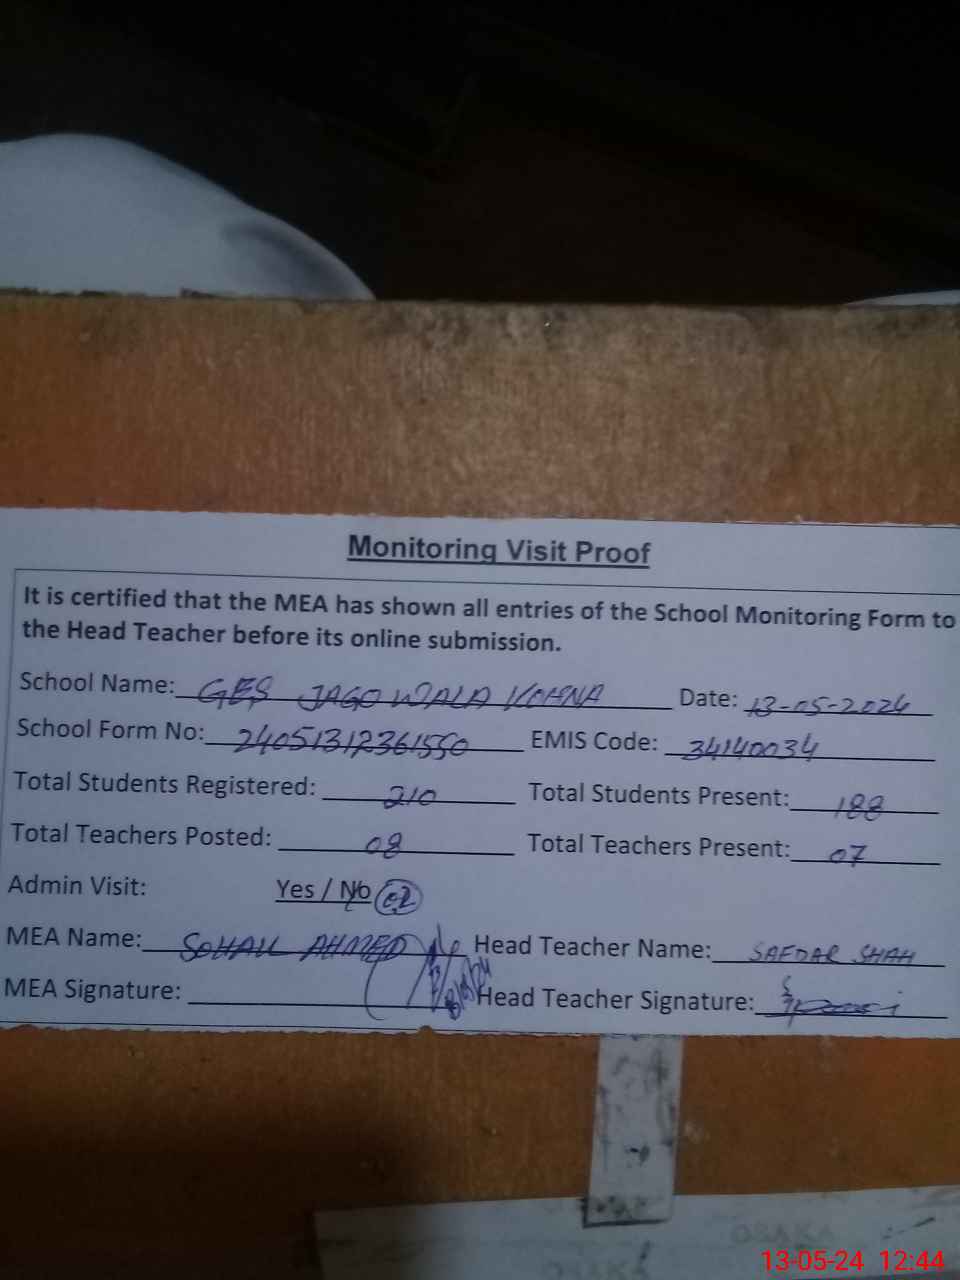 Monitoring Visit Proof
It is certified that the MEA has shown all entries of the School Monitoring Form to
the Head Teacher before its online submission.
School Name: GES JAGOWALA KOHNA Date: 13-05-2024
School Form No: 24051312361550 EMIS Code: 34140034
Total Students Registered: 210 Total Students Present: 188
Total Teachers Posted: 08 Total Teachers Present: 07
Admin Visit: Yes / No 02
MEA Name: SOHAIL AHMED Head Teacher Name: SAFDAR SHAH
MEA Signature: Head Teacher Signature:
OSAKA
13-05-24 12:44